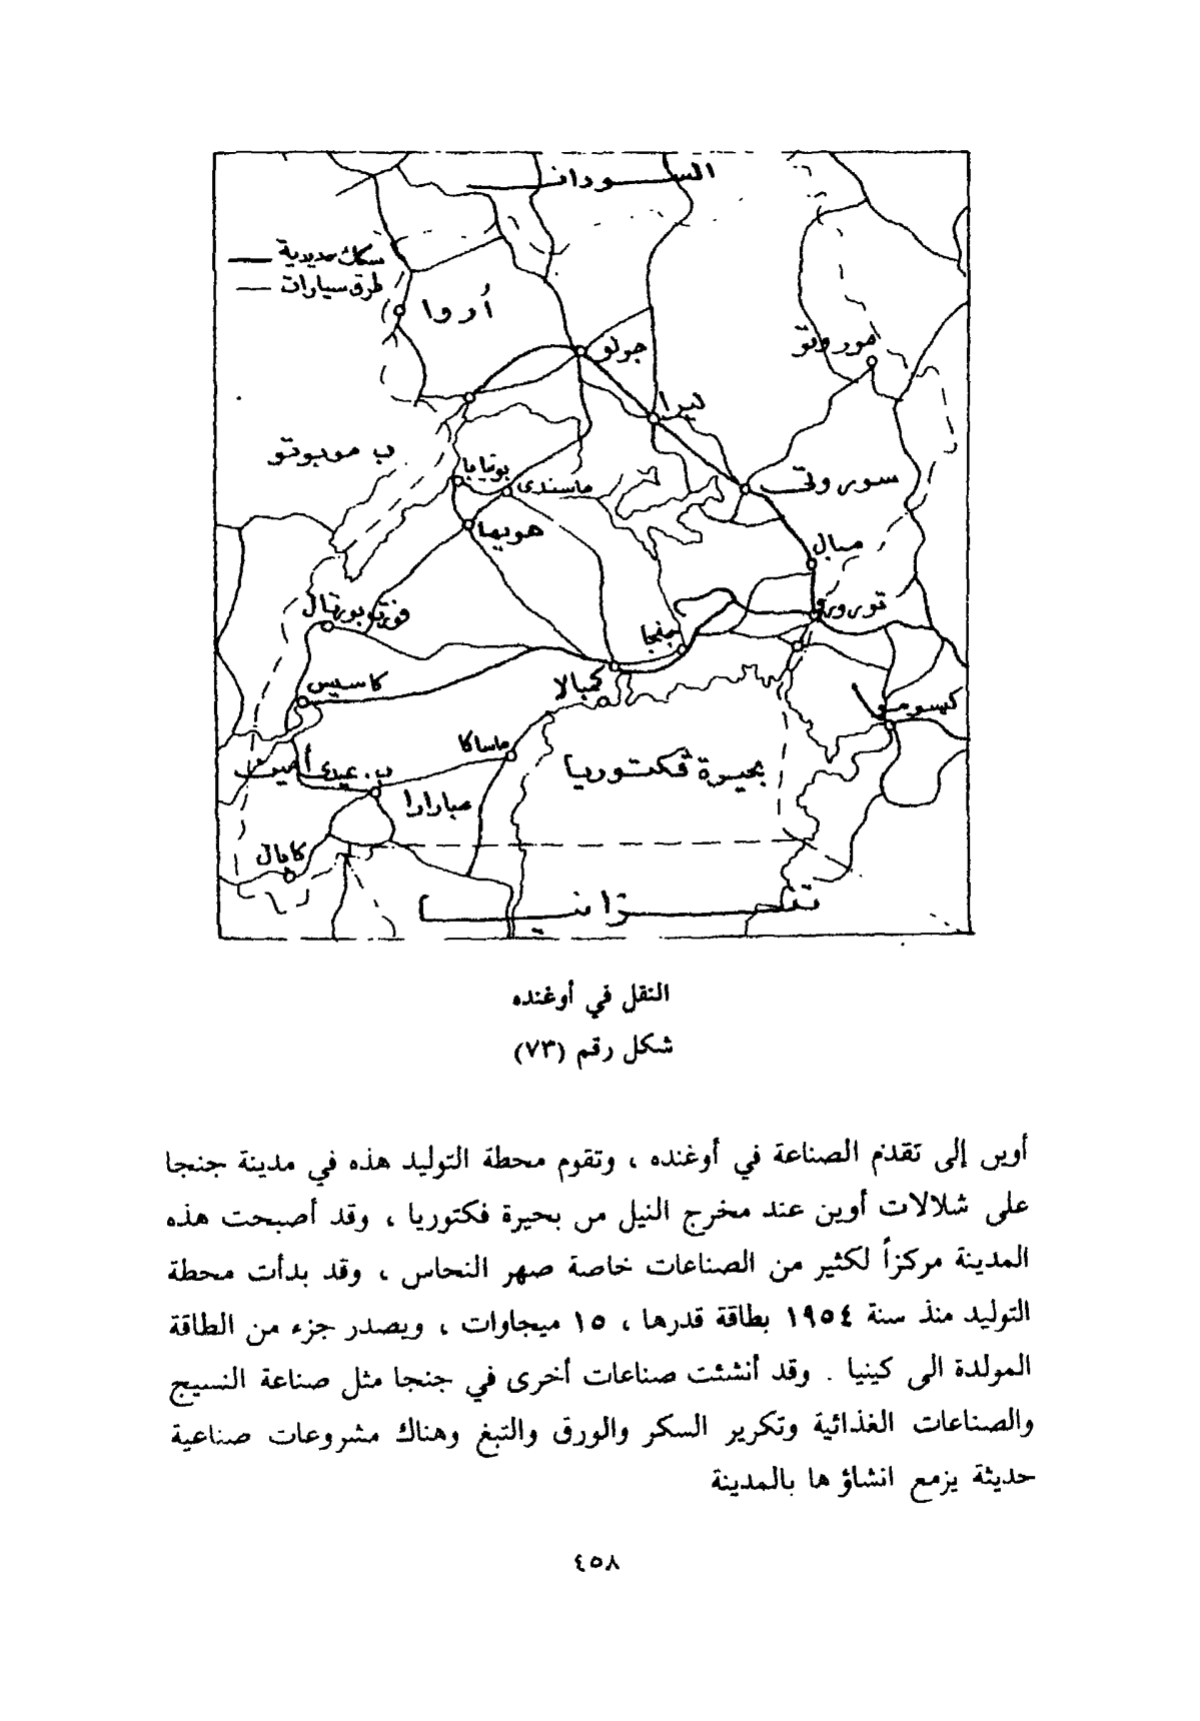 السودان
سكك حديدية
طرق سيارات
أروا
جولو
موروتو
ليرا
ب موبوتو
بوتيابا
ماسندى
سوروتى
هويما
مبال
فورت بورتال
تورورو
جنجا
كاسيس
كمبالا
كيسومو
ماساكا
ب. عيدى أمين
بحيرة فكتوريا
مبارارا
كابال
تنزانيا
النقل في أوغنده
شكل رقم (٧٣)
أوين إلى تقدم الصناعة في أوغنده ، وتقوم محطة التوليد هذه في مدينة جنجا
على شلالات أوين عند مخرج النيل من بحيرة فكتوريا ، وقد أصبحت هذه
المدينة مركزاً لكثير من الصناعات خاصة صهر النحاس ، وقد بدأت محطة
التوليد منذ سنة ١٩٥٤ بطاقة قدرها ، ١٥ ميجاوات ، ويصدر جزء من الطاقة
المولدة الى كينيا . وقد أنشئت صناعات أخرى في جنجا مثل صناعة النسيج
والصناعات الغذائية وتكرير السكر والورق والتبغ وهناك مشروعات صناعية
حديثة يزمع انشاؤ ها بالمدينة
٤٥٨